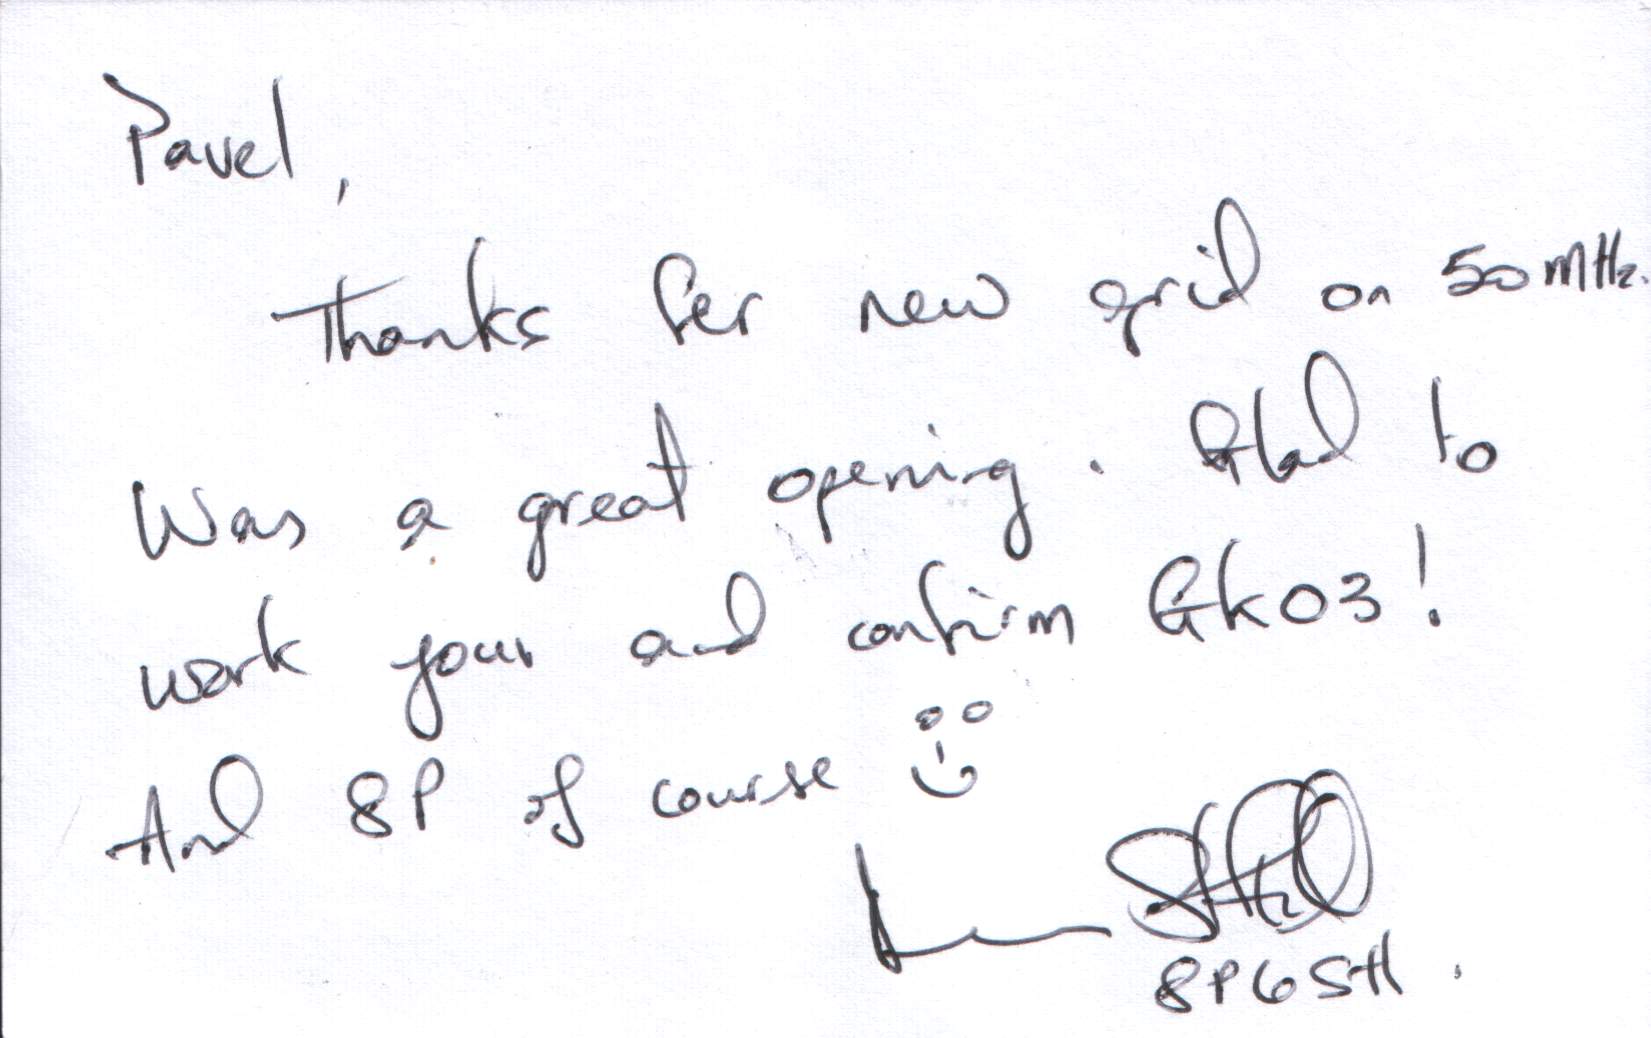 Pavel,
Thanks fer new grid on 50 MHz.
Was a great opening. Glad to
work your and confirm GK03!
And 8P of course
8P6SH.